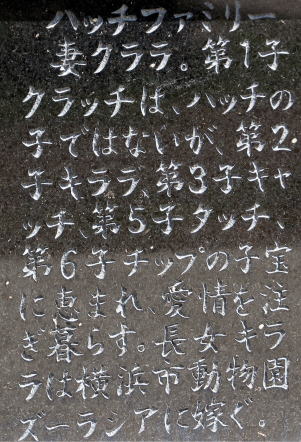 ハッチファミリー、
妻クララ。第1子
クラッチは、ハッチの
子ではないが、第2
子キララ、第3子キャ
ッチ、第5子タッチ、
第6子チップの子宝
に恵まれ、愛情を注
ぎ暮らす。長女キラ
ラは横浜市動物園
ズーラシアに嫁ぐ。